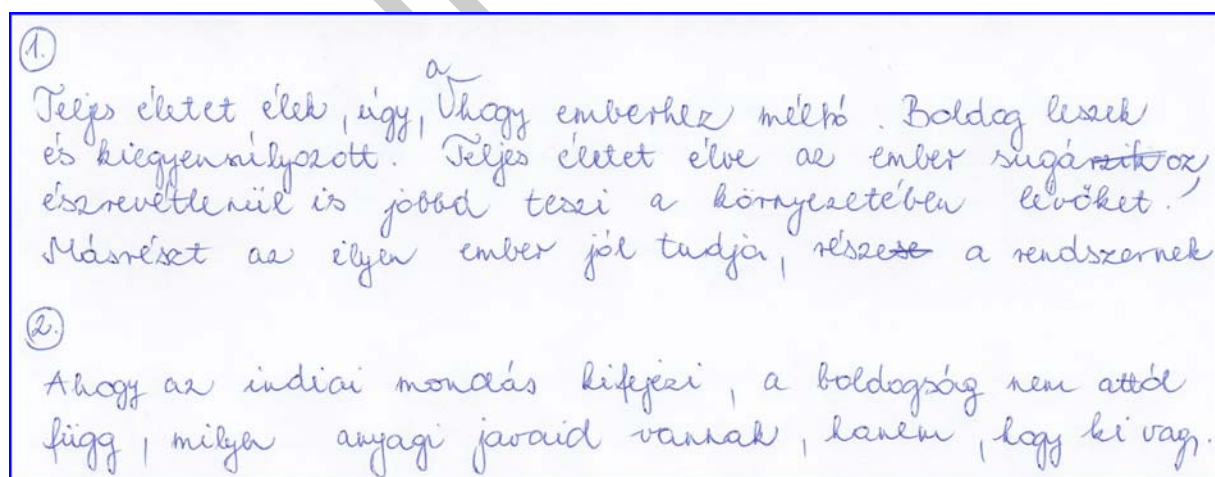 1.
a
Teljes életet élek, úgy, hogy emberhez méltó. Boldog leszek
és kiegyensúlyozott. Teljes életet élve az ember sugárzik oz,
észrevétlenül is jobbá teszi a környezetében levőket.
Másrészt az ilyen ember jól tudja, részese a rendszernek
2.
Ahogy az indiai mondás kifejezi, a boldogság nem attól
függ, milyen anyagi javaid vannak, hanem, hogy ki vagy.